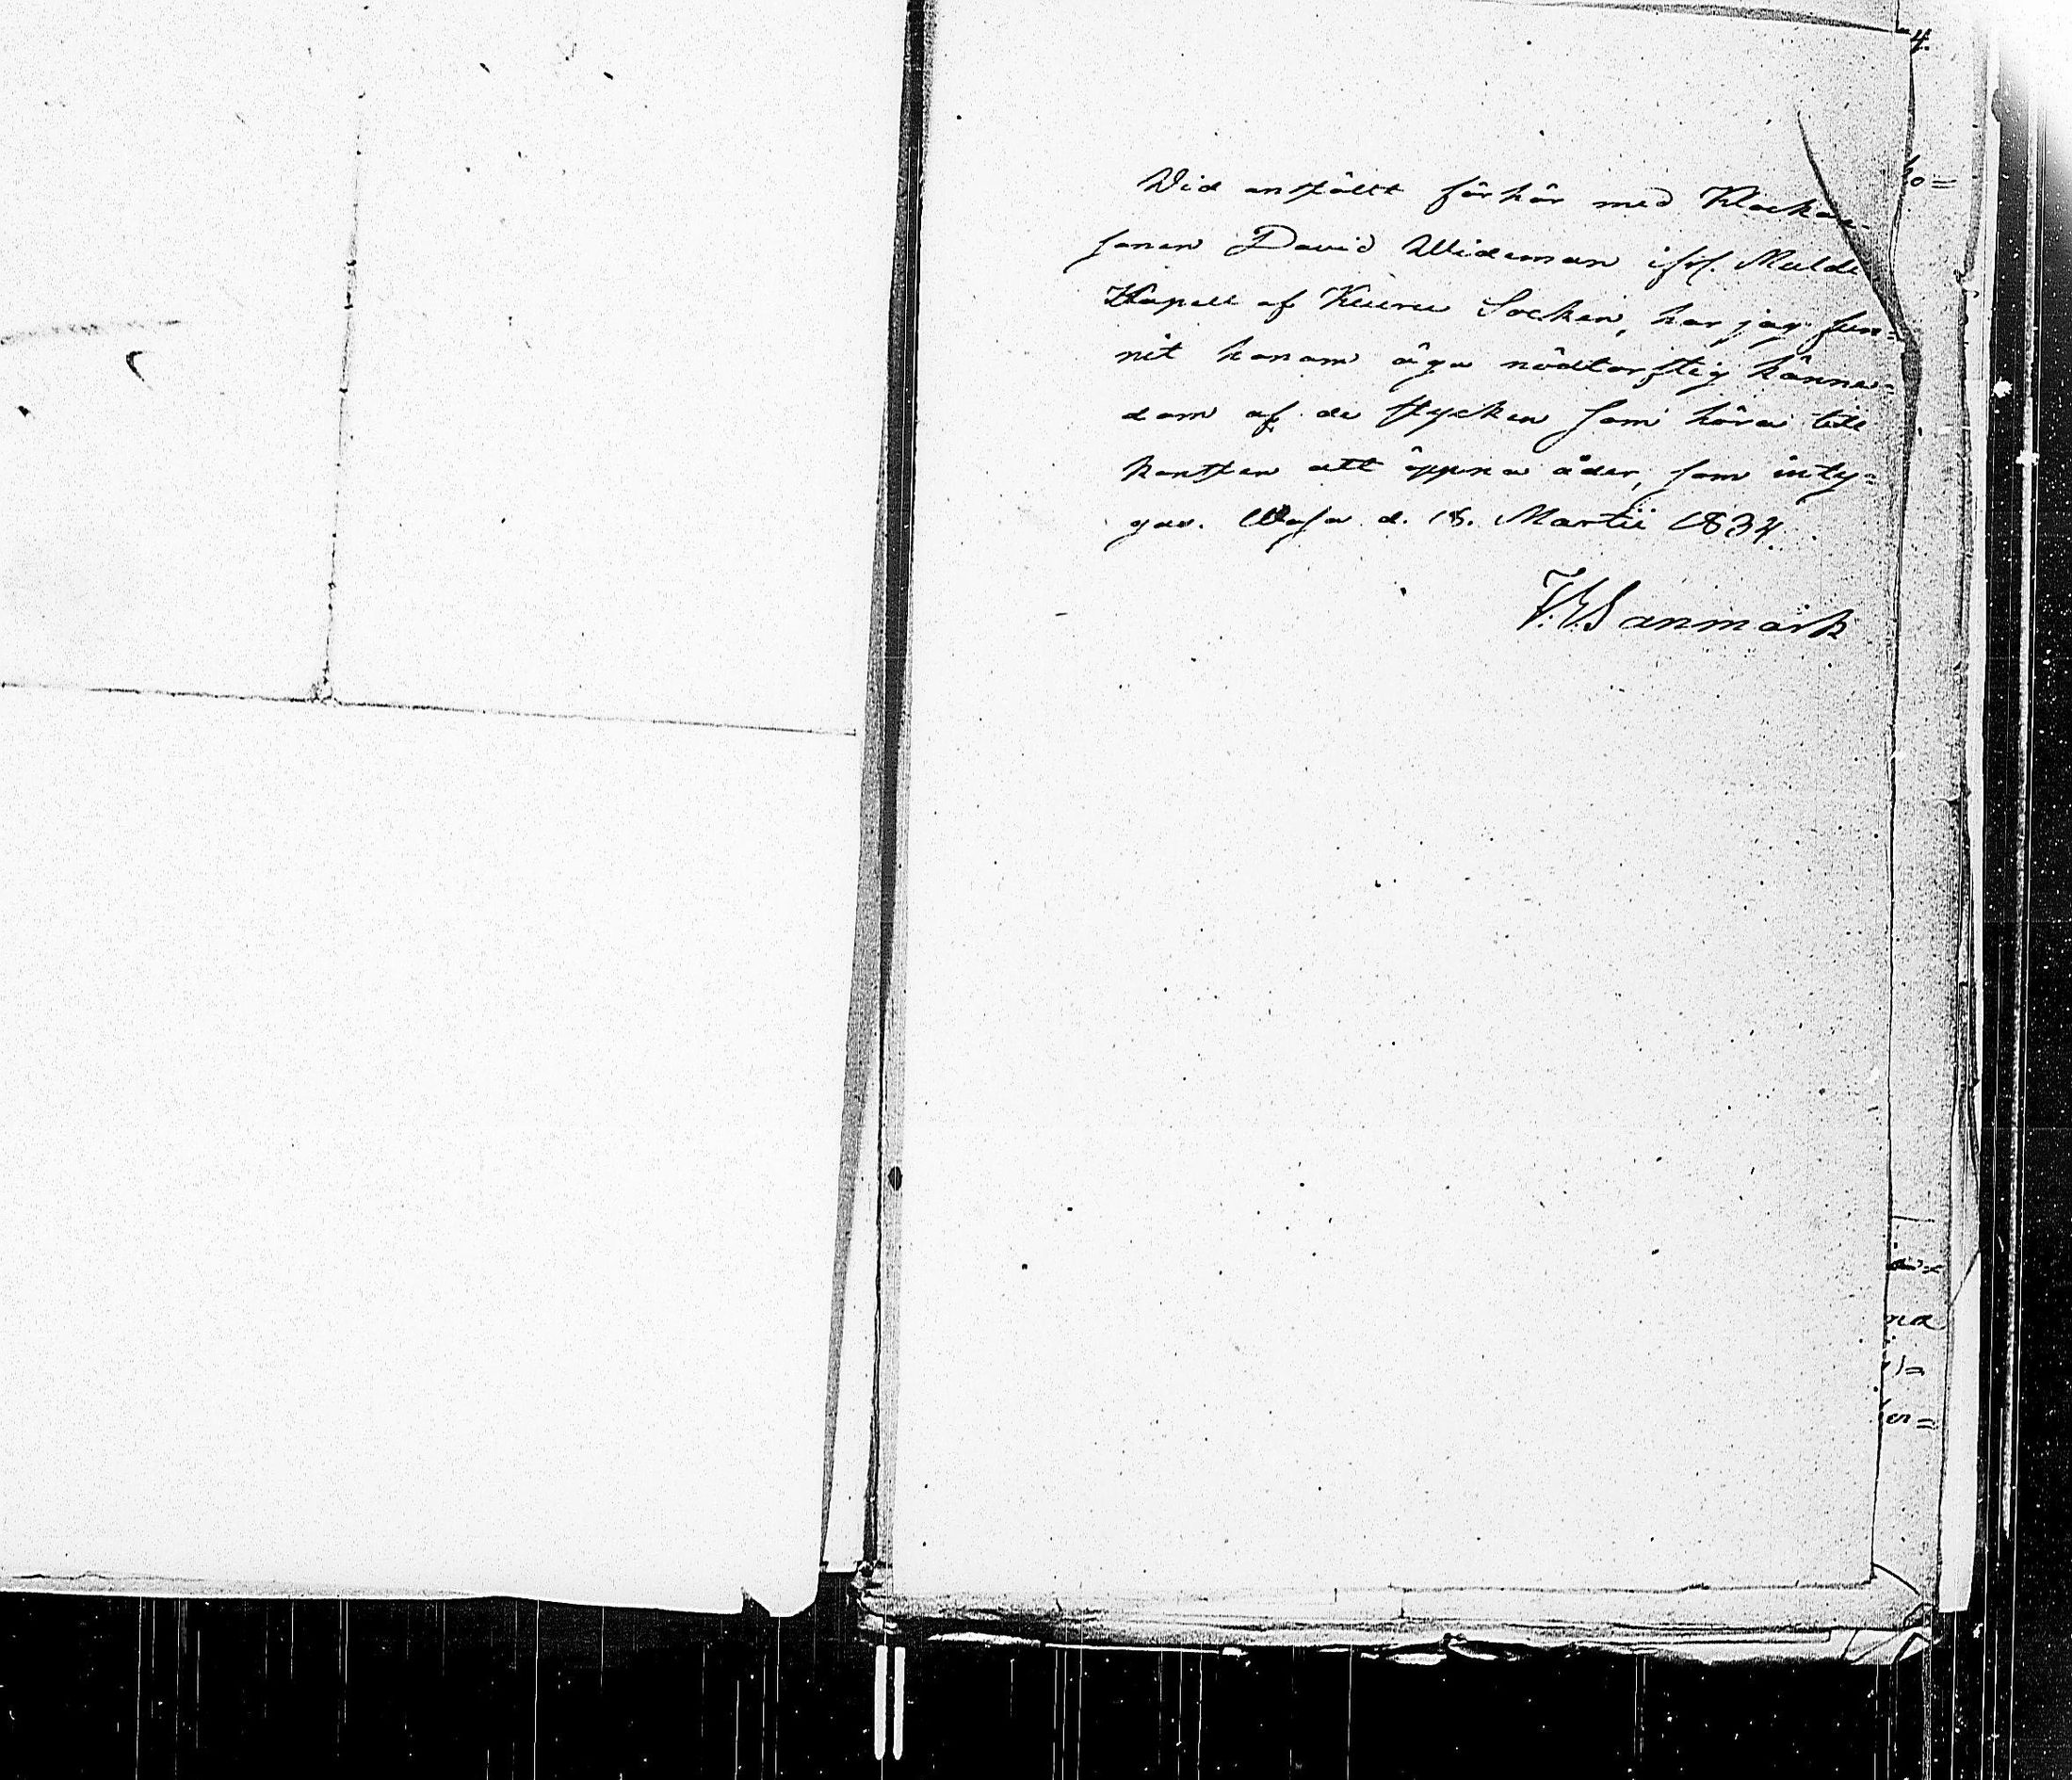 4.
Vid anstäldt förhör med Klockar
sonen David Wideman ifrå. Multi
Kapell af Keuru Socken, har jag fun=
nit honom äga nödtorftig känne=
dom af de stycken som höra till
konsten att öppna åder, som inty=
gas. Wasa d. 18. Martii 1834.
V. E. Sanmark
ho=
na
en=